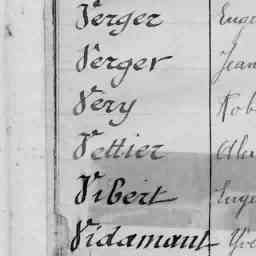 Verger Euge
Verger Jean
Very Rob
Vettier Alex
Vibert Euge
Vidamant Yve